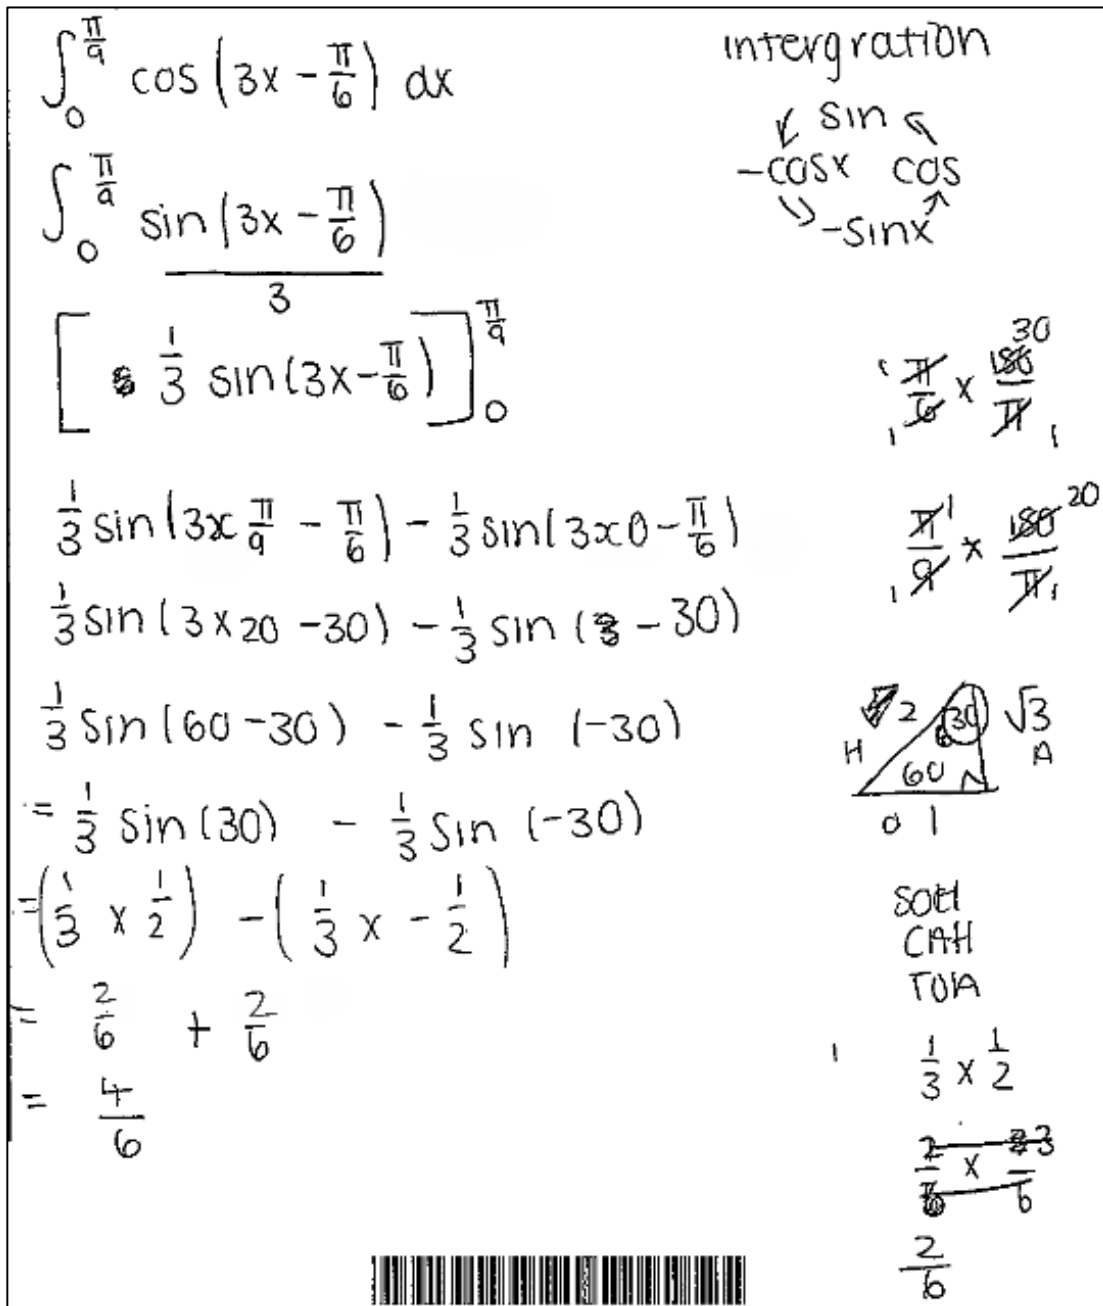 ∫₀^(π/9) cos(3x − π/6) dx
∫₀^(π/9) sin(3x − π/6) / 3
[ 1/3 sin(3x − π/6) ]₀^(π/9)
1/3 sin(3x π/9 − π/6) − 1/3 sin(3x0 − π/6)
1/3 sin(3 x 20 − 30) − 1/3 sin( − 30)
1/3 sin(60 − 30) − 1/3 sin (−30)
= 1/3 sin(30) − 1/3 sin (−30)
= (1/3 x 1/2) − (1/3 x − 1/2)
= 2/6 + 2/6
= 4/6
intergration
sin
−cosx cos
−sinx
π/6 x 180/π 30
1 1 1
π/9 x 180/π 20
1 1 1
2 30 √3
H 60 A
0 1
SOH
CAH
TOA
1/3 x 1/2
2/6 x 3/6
2/6